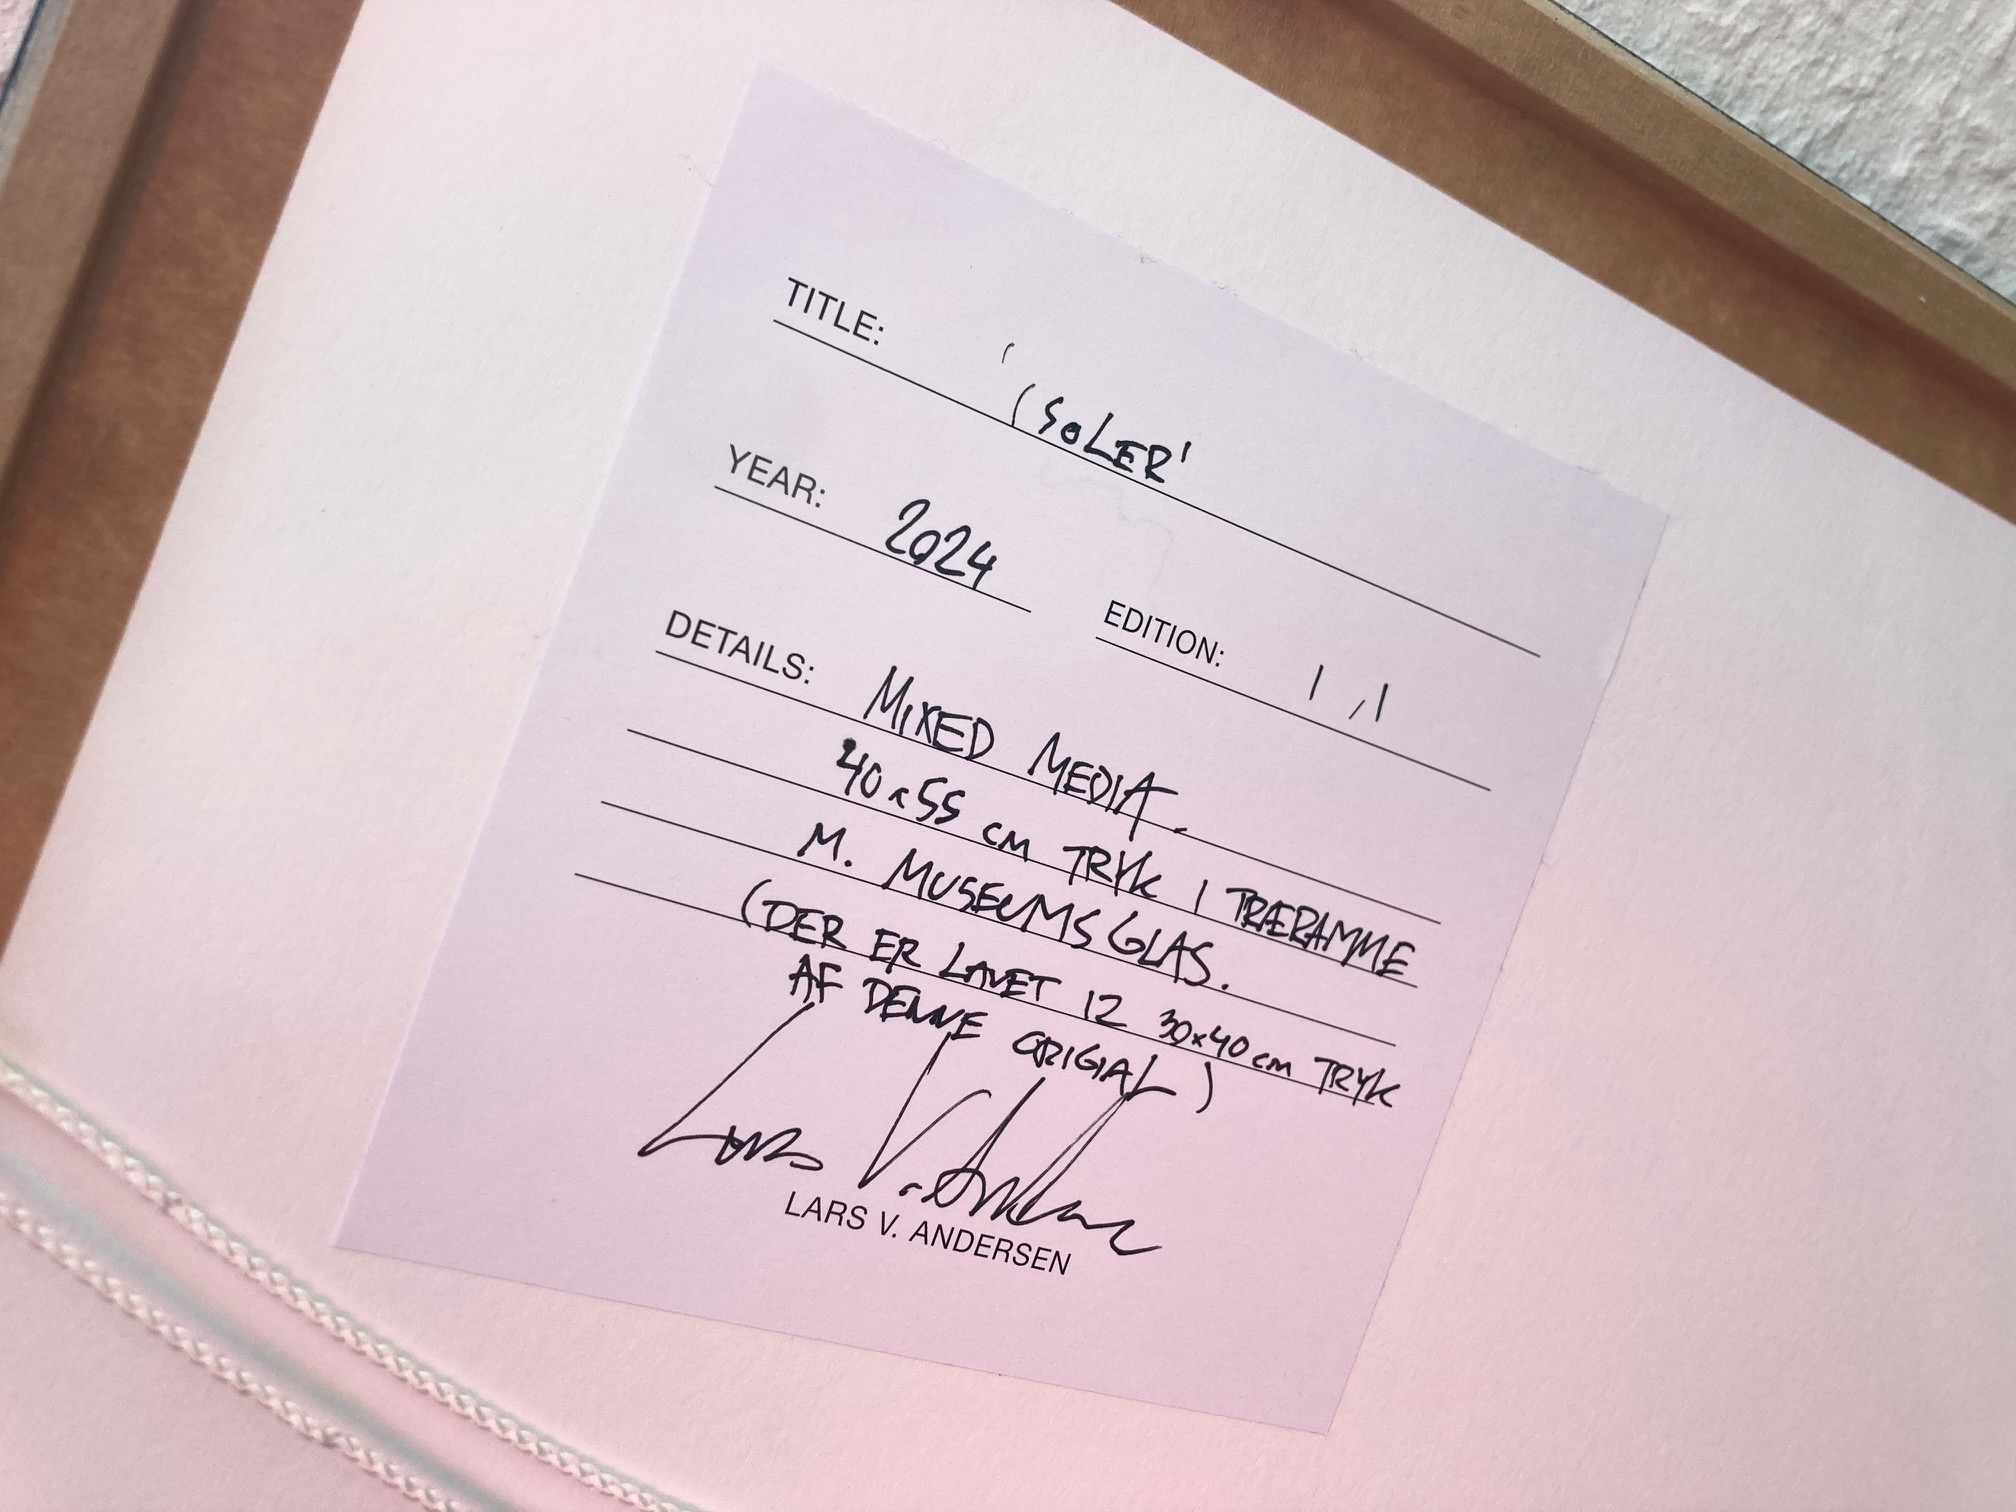 TITLE: 'ISOLER'
YEAR: 2024
EDITION: 1/1
DETAILS: MIXED MEDIA.
40x55 CM TRYK I TRÆRAMME
M. MUSEUMSGLAS.
(DER ER LAVET 12 30x40 cm TRYK
AF DENNE ORIGIAL)
Lars V. Andersen
LARS V. ANDERSEN